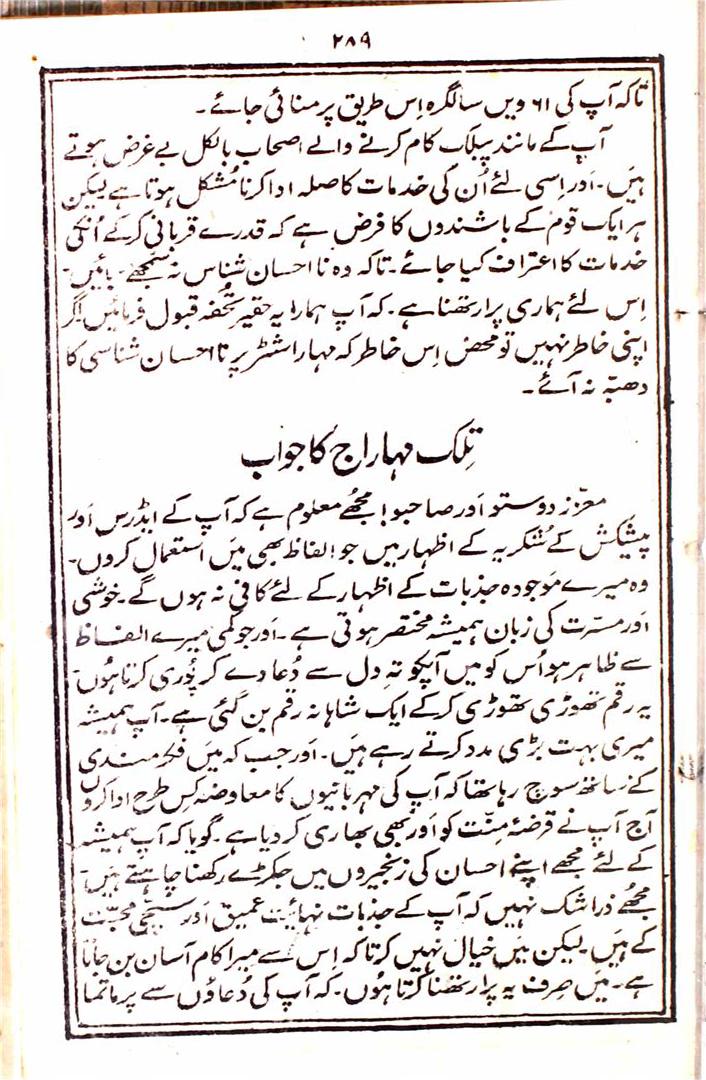 ۲۸۹
تاکہ آپ کی ۶۱ ویں سالگرہ اِس طریق پر منائی جائے۔
آپ کے مانند پبلک کام کرنے والے اصحاب بالکل بے غرض ہوتے
ہیں۔ اَور اِسی لئے اُن کی خدمات کا صلہ ادا کرنا مُشکل ہوتا ہے لیکن
ہر ایک قوم کے باشندوں کا فرض ہے کہ قدرے قربانی کرکے اُنکی
خدمات کا اعتراف کیا جائے۔ تاکہ وہ نا احسان شناس نہ سمجھے جائیں۔
اِس لئے ہماری پرارتھنا ہے۔ کہ آپ ہمارا یہ حقیر تحُفہ قبول فرمائیں اگر
اپنی خاطر نہیں تو محض اِس خاطر کہ مہاراشٹر پر نا احسان شناسی کا
دھبّہ نہ آئے۔
تِلک مہاراج کا جواب
معزّز دوستو اَور صاحبو! مجُھے معلوم ہے کہ آپ کے ایڈرس اَور
پیشکش کے شُکریہ کے اظہار میں جو الفاظ بھی مَیں استعمال کروں۔
وہ میرے مَوجودہ جذبات کے اظہار کے لئے کافی نہ ہوں گے۔ خوشی
اَور مسرّت کی زبان ہمیشہ مختصر ہوتی ہے۔ اَور جو کمی میرے الفاظ
سے ظاہر ہو اُس کو میں آپکو تہِ دل سے دُعا دے کر پُوری کرتا ہُوں۔
یہ رقم تھوڑی تھوڑی کرکے ایک شاہانہ رقم بن گئی ہے۔ آپ ہمیشہ
میری بہت بڑی مدد کرتے رہے ہَیں۔ اَور جب کہ مَیں فکر مندی
کے ساتھ سوچ رہا تھا کہ آپ کی مہربانیوں کا معاوضہ کِس طرح ادا کروں
آج آپ نے قرضۂ مِنّت کو اَور بھی بھاری کر دیا ہے۔ گویا کہ آپ ہمیشہ
کے لئے مجھے اپنے احسان کی زنجیروں میں جکڑے رکھنا چاہتے ہَیں۔
مجھُے ذرا شک نہیں کہ آپ کے جذبات نہائیت عمیق اَور سچّی محبّت
کے ہَیں۔ لیکن مَیں خیال نہیں کرتا کہ اِس سے میرا کام آسان بن جاتا
ہے۔ مَیں صِرف یہ پرارتھنا کرتا ہُوں۔ کہ آپ کی دُعاؤں سے پرماتما